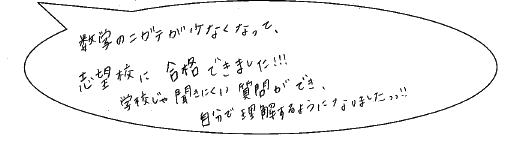 数学のニガテが少なくなって、
志望校に合格できました!!!
学校じゃ聞きにくい質問ができ、
自分で理解するようになりましたっっ!!